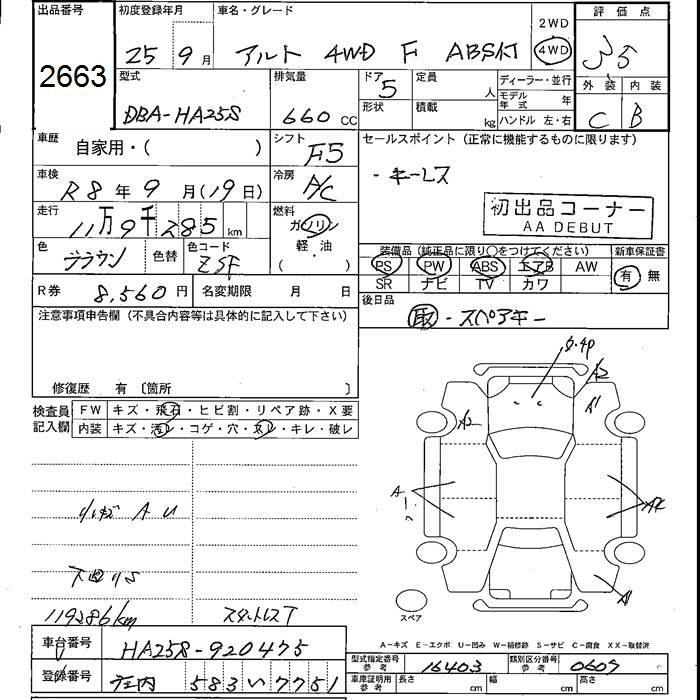 出品番号
2663
初度登録年月
25 9月
車名・グレード
アルト 4WD F ABS付
2WD
4WD
評価点
3.5
外装 内装
C B
型式
DBA-HA25S
排気量
660 CC
ドア
5
形状
定員
人
積載
kg
ディーラー・並行
モデル年式 年
ハンドル 左・右
車歴
自家用・( )
シフト
F5
セールスポイント(正常に機能するものに限ります)
・キーレス
初出品コーナー
AA DEBUT
車検
R8年9月(19日)
冷房
A/C
走行
11万9千285km
燃料
ガソリン
軽・油
( )
色
ブラウン
色替
色コード
ZSF
装備品(純正品に限り○をつけてください)
PS PW ABS エアB AW
SR ナビ TV カワ
新車保証書
有 無
R券 8,560円
名変期限 月 日
後日品
取-スペアキー
注意事項申告欄(不具合内容等は具体的に記入して下さい)
修復歴 有〔箇所 〕
検査員記入欄
FW キズ・飛石・ヒビ割・リペア跡・X要
内装 キズ・汚レ・コゲ・穴・スレ・キレ・破レ
小キズ A U
下回りS
119286km
スタットレスT
A2
A1
A2
A
スペア
A-キズ E-エクボ U-凹み W-補修跡 S-サビ C-腐食 XX-取替済
車台番号
HA25S-920475
登録番号
庄内 583 い 7751
型式指定番号
参考
16403
類別区分番号
参考
0607
車庫証明用
参考
長さ cm
幅 cm
高さ cm